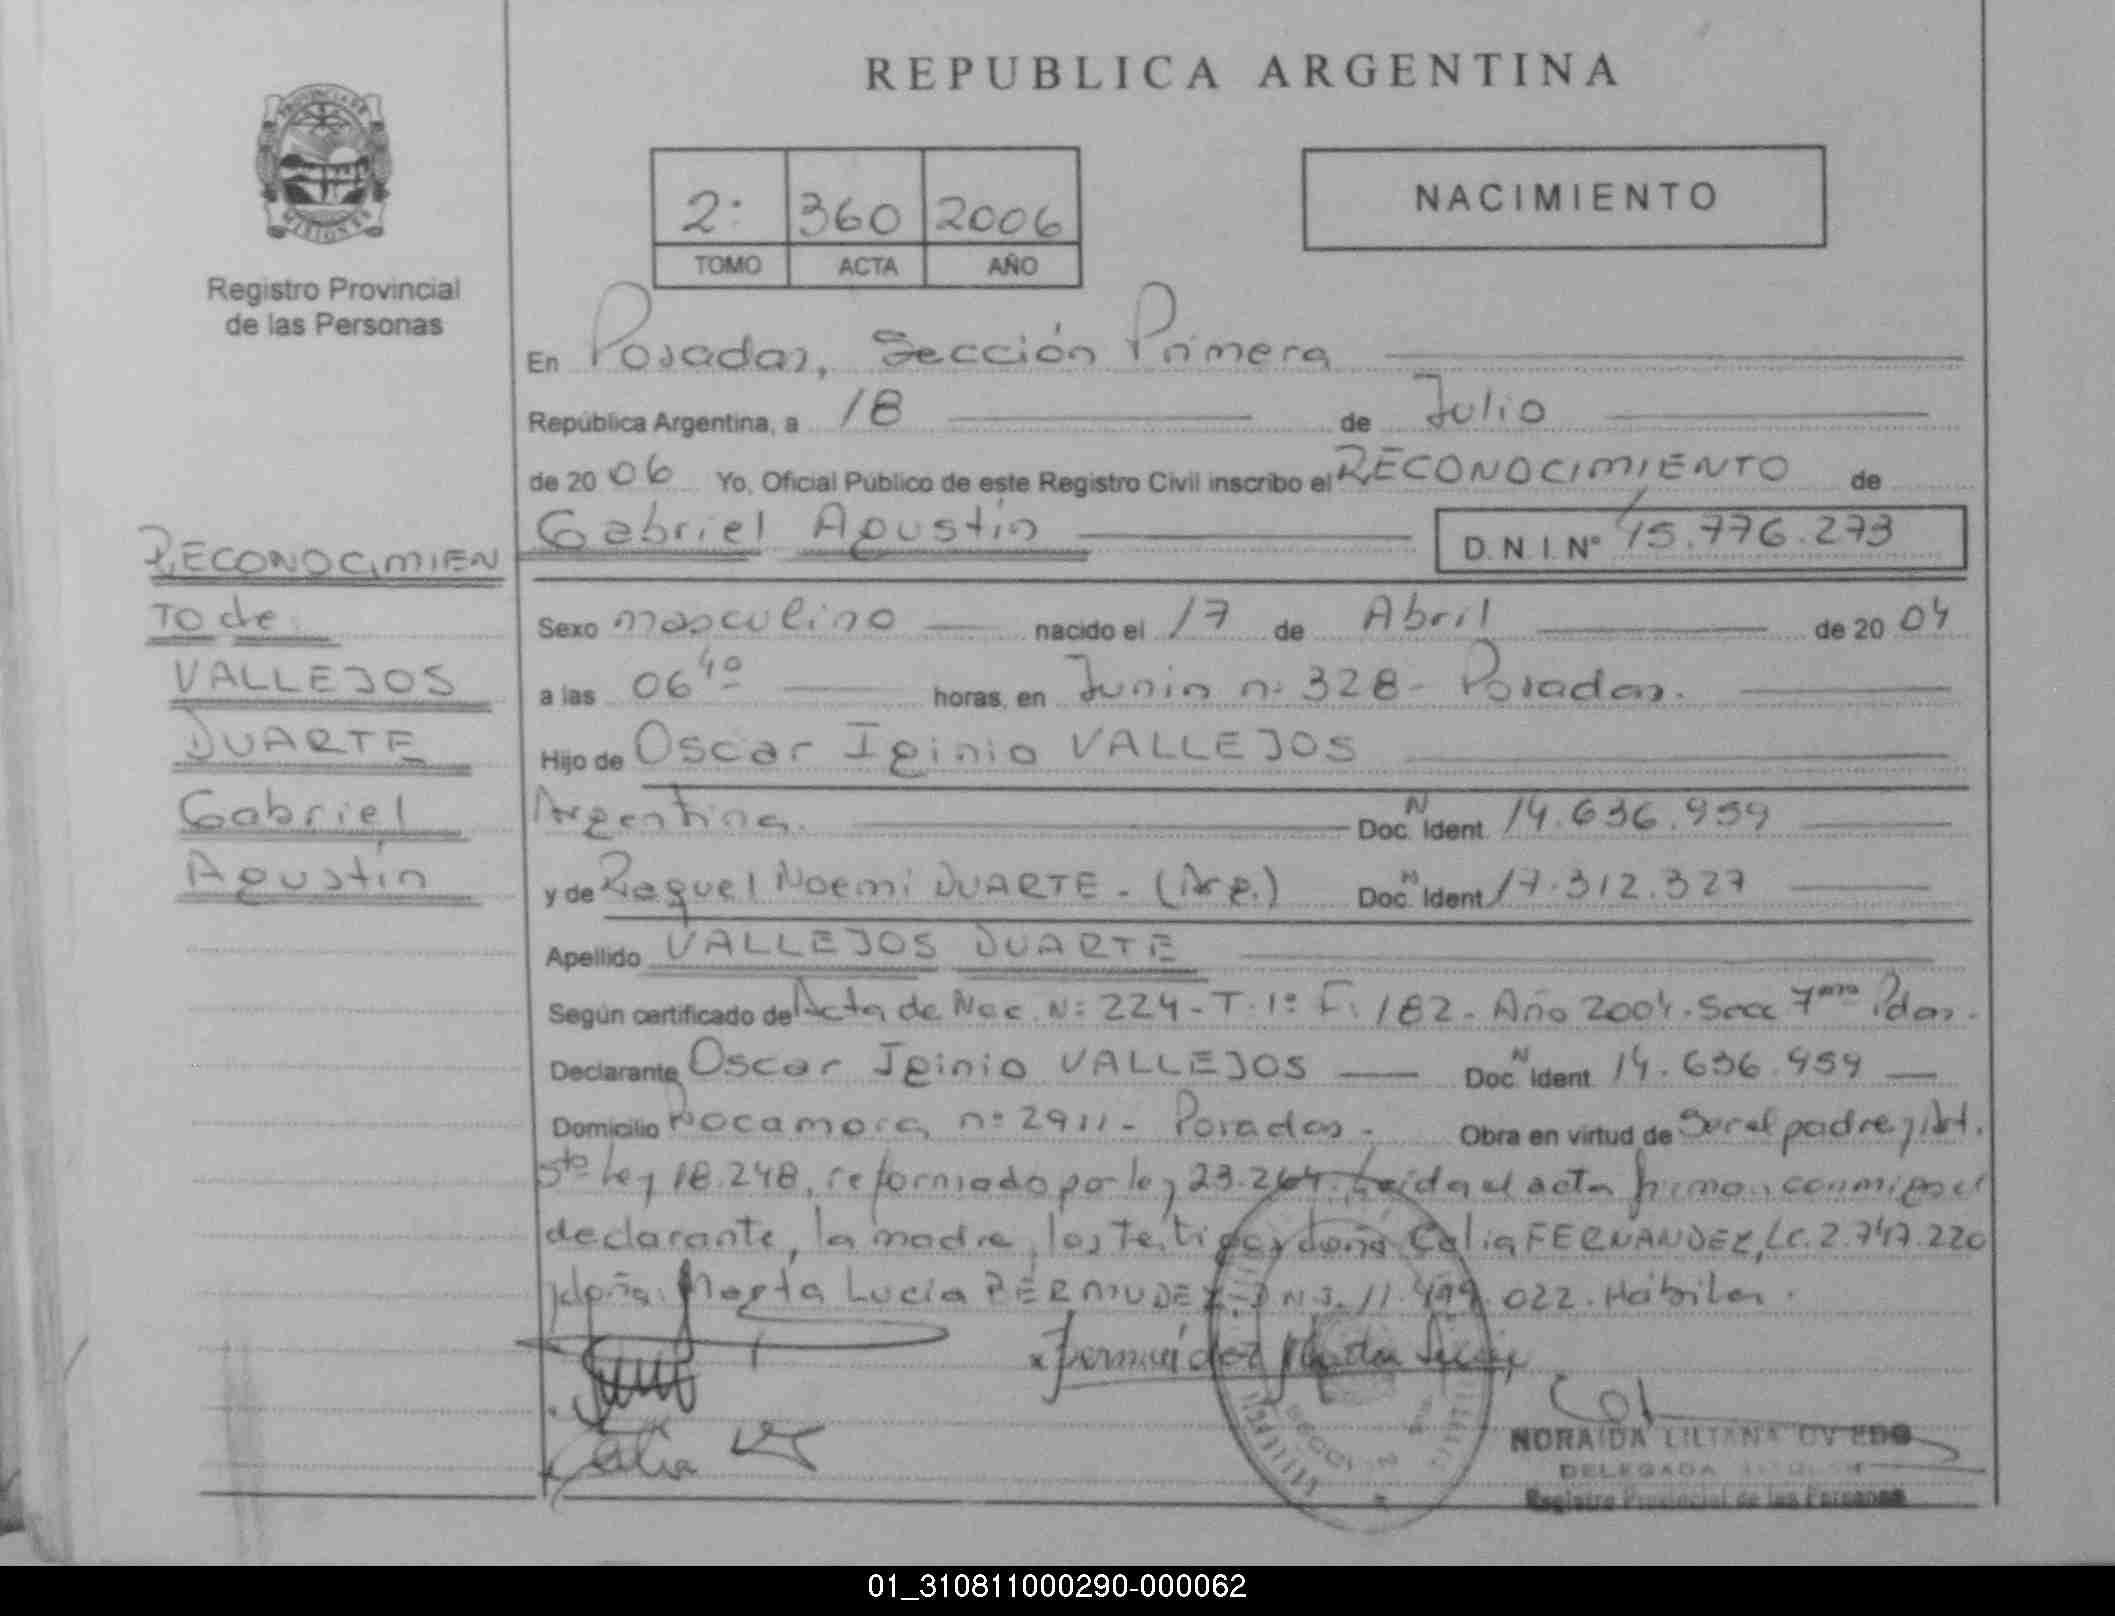 REPUBLICA ARGENTINA
PROVINCIA DE
MISIONES
Registro Provincial
de las Personas
2º 360 2006
TOMO ACTA AÑO
NACIMIENTO
En Posadas, Sección Primera
República Argentina, a 18 de Julio
de 20 06 Yo, Oficial Público de este Registro Civil inscribo el RECONOCIMIENTO de
Gabriel Agustín D.N.I. Nº 45.776.273
RECONOCIMIEN
TO de
VALLEJOS
DUARTE
Gabriel
Agustín
Sexo masculino nacido el 17 de Abril de 20 04
a las 06 40 horas, en Junin nº 328 - Posadas.
Hijo de Oscar Iginio VALLEJOS
Argentina. Doc. N Ident. 14.636.959
y de Raquel Noemi DUARTE - (Arg.) Doc. N Ident. 17.312.327
Apellido VALLEJOS DUARTE
Según certificado de Acta de Nac. Nº 224 - T. 1º F. 182 - Año 2004. Secc 7ma Pdas.
Declarante Oscar Iginio VALLEJOS Doc. N Ident. 14.636.959
Domicilio Rocamora nº 2911 - Posadas. Obra en virtud de Ser el padre y Art.
5to Ley 18.248, reformado por ley 23.264. Leída el acta firman conmigo el
declarante, la madre, los testigos doña Celia FERNANDEZ, LC. 2.747.220
y doña Marta Lucia BERMUDEZ - DNI. 11.499.022. Hábiles.
Bermúdez Marta Lucia
Celia
NORAIDA LILIANA OVIEDO
DELEGADA
Registro Provincial de las Personas
01_310811000290-000062